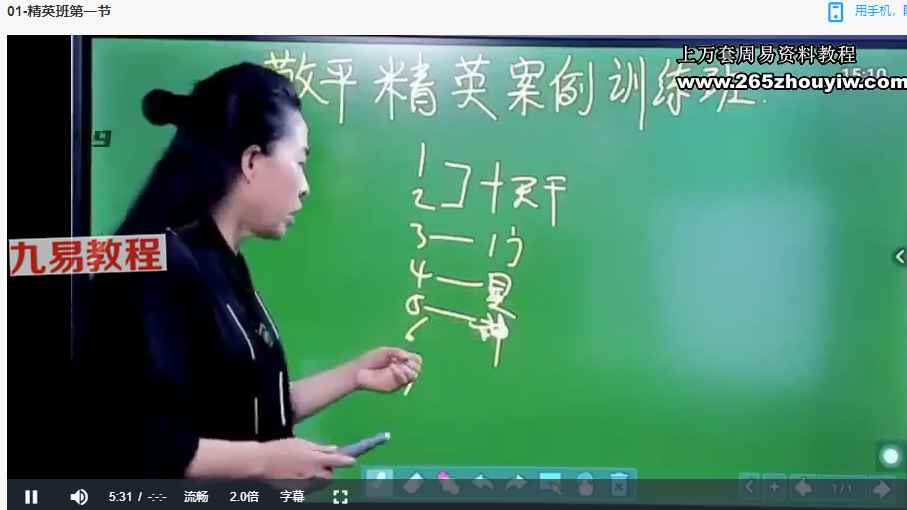 01-精英班第一节
用手机，
上万套周易资料教程
敬平精英案例训练班.
15:10
www.265zhouyiw.com
1
2
十天干
3—
4—
5—
神
6
九易教程
5:31 / -:-:-
流畅
2.0倍
字幕
1/1